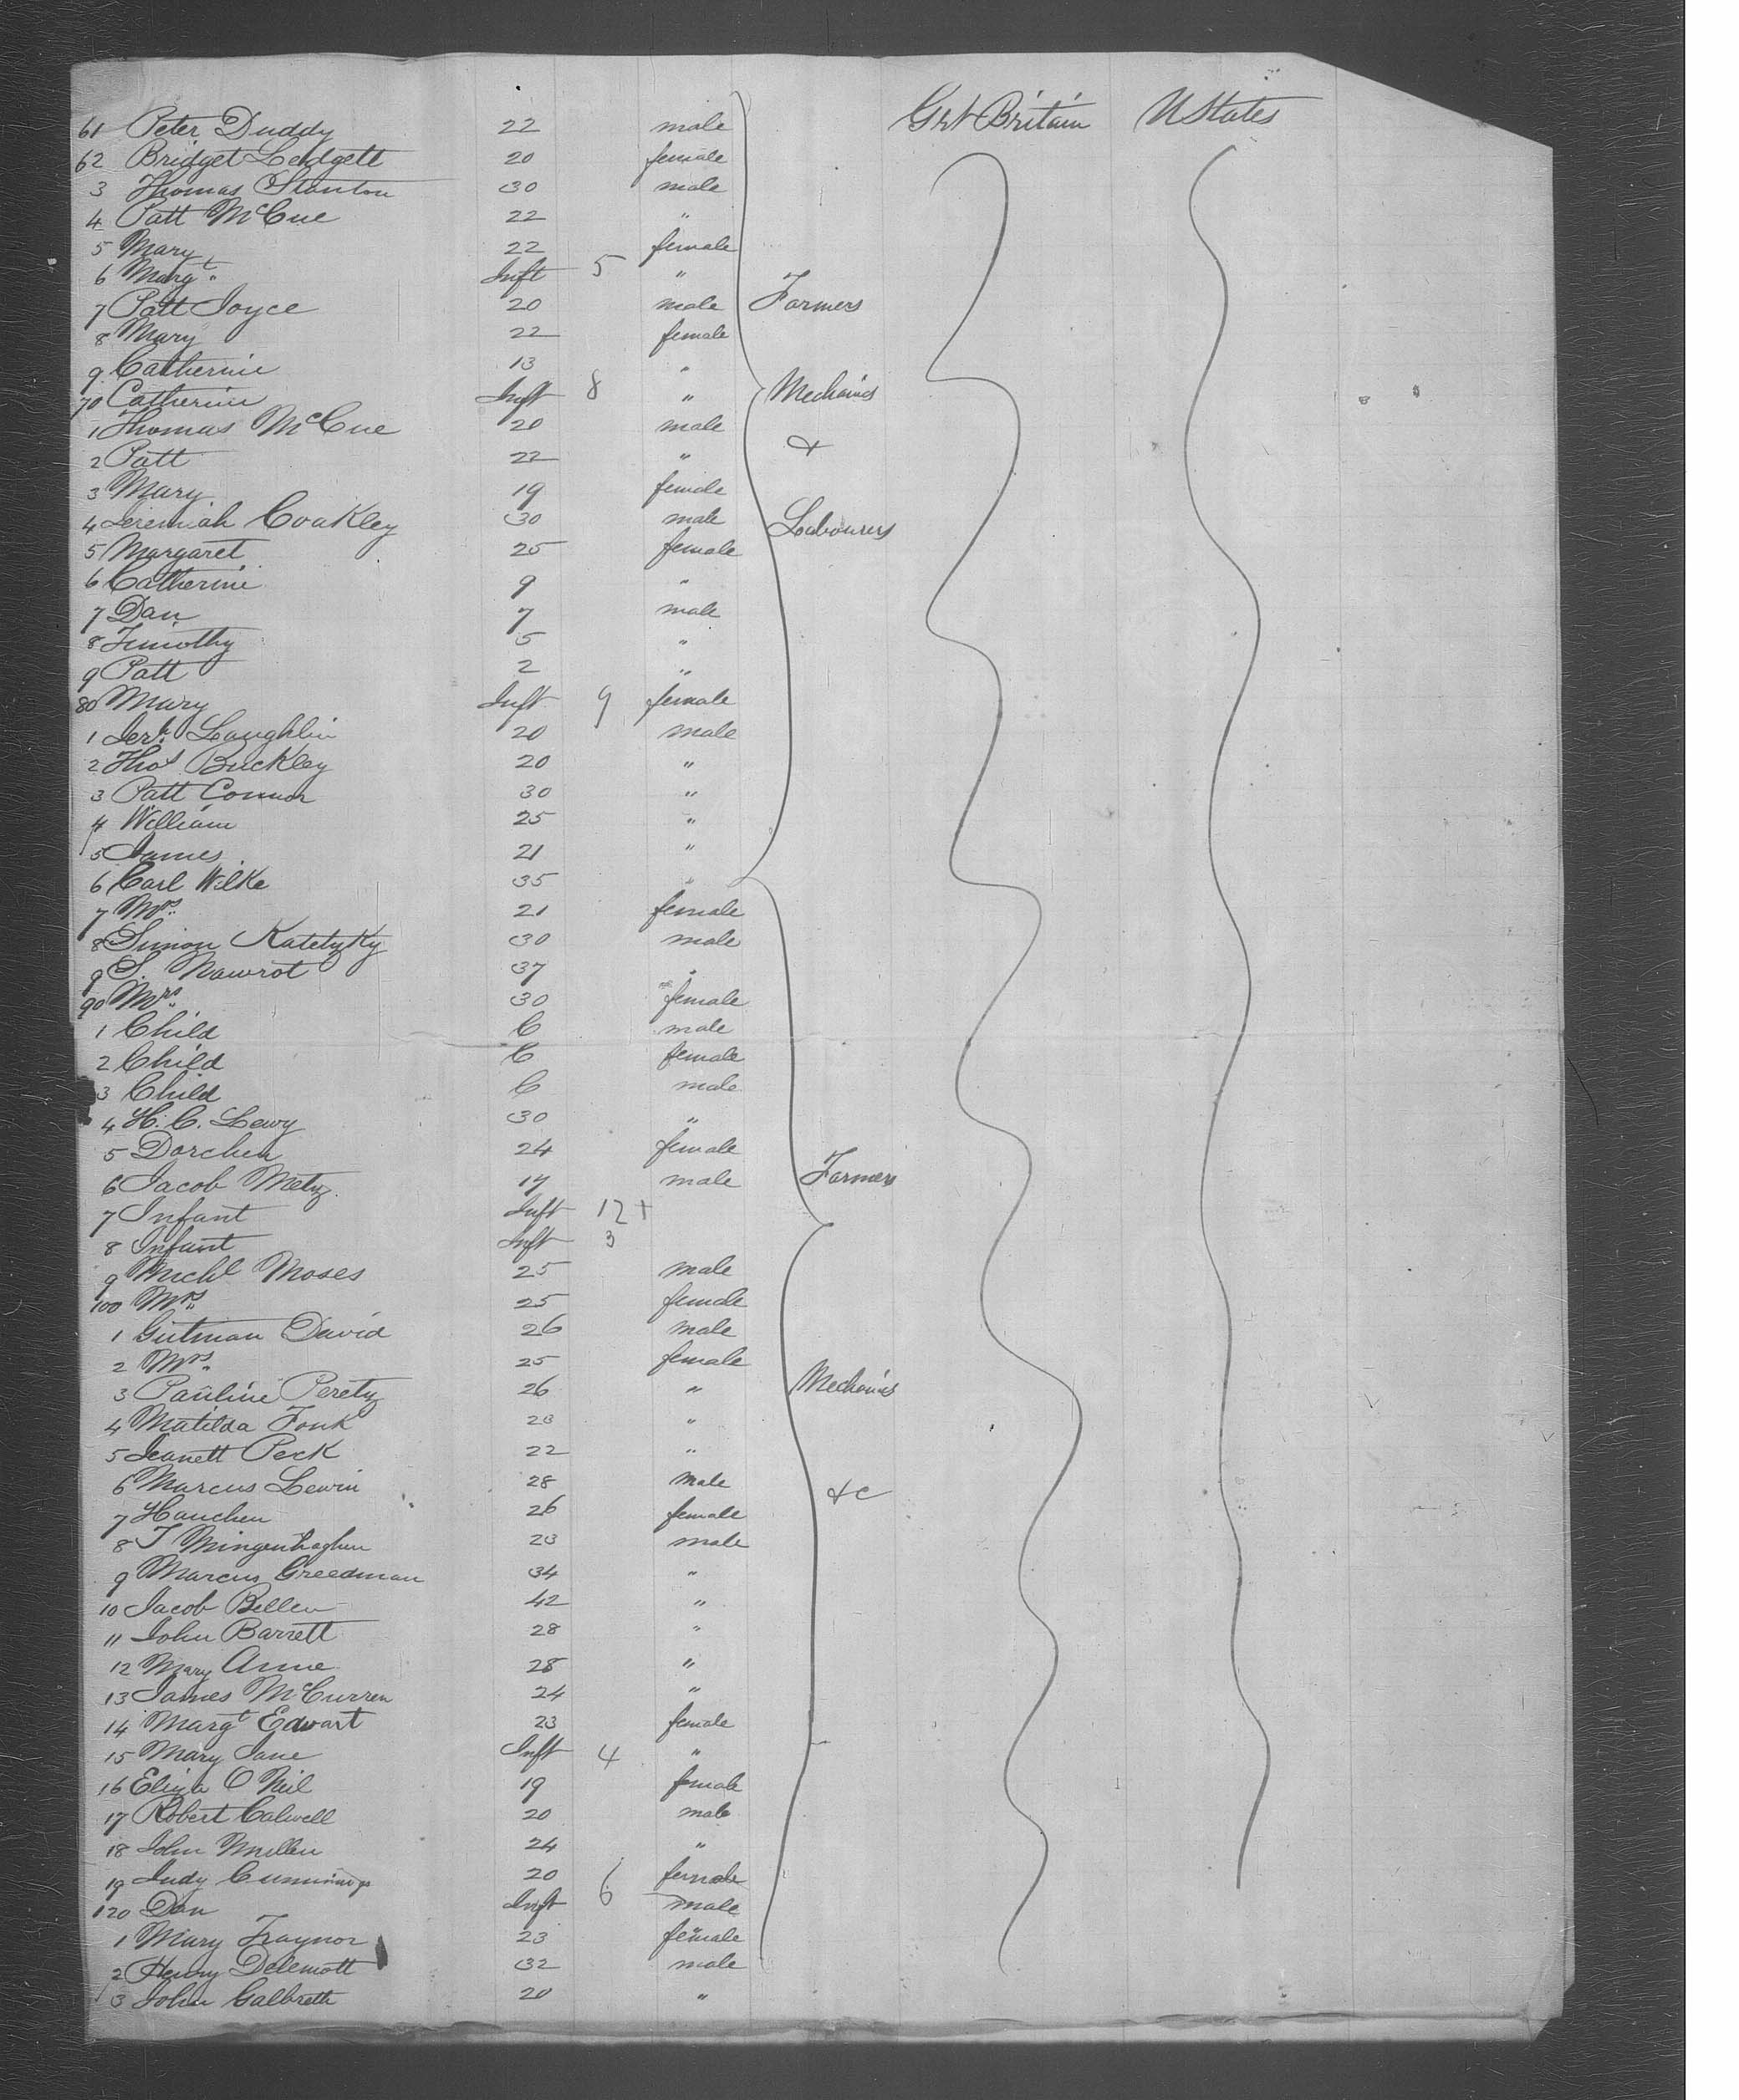 61 Peter Duddy 22 male Grt Britain U States
62 Bridget Ledgett 20 female
3 Thomas Stanton 30 male
4 Patt McCue 22 "
5 Mary 22 female
6 Margt. Inft 5 "
7 Patt Joyce 20 male Farmers
8 Mary 22 female
9 Catherine 13 "
70 Catherine Inft 8 " Mechanics
1 Thomas McCue 20 male
2 Patt 22 " &
3 Mary 19 female
4 Jeremiah Coakley 30 male Labourers
5 Margaret 25 female
6 Catherine 9 "
7 Dan 7 male
8 Timothy 5 "
9 Patt 2 "
80 Mary Inft 9 female
1 Jerh. Laughlin 20 male
2 Thos Buckley 20 "
3 Patt Connor 30 "
4 William 25 "
5 James 21 "
6 Carl Wilke 35 "
7 Mrs. 21 female
8 Simon Katelzky 30 male
9 S. Nawrot 37 "
90 Mrs 30 female
1 Child C male
2 Child C female
3 Child C male
4 H. C. Lewy 30 "
5 Dorchen 24 female
6 Jacob Metz. 17 male Farmers
7 Infant Inft 12 +
8 Infant Inft 3
9 Michl Moses 25 male
100 Mrs 25 female
1 Gutman David 26 male
2 Mrs. 25 female
3 Pauline Peretz 26 " Mechanics
4 Matilda Fonk 23 "
5 Jeanett Peck 22 "
6 Marcus Lewin 28 male &c
7 Hanchen 26 female
8 T 23 male
9 Marcus Greedman 34 "
10 Jacob Bellen 42 "
11 John Barrett 28 "
12 Mary Anne 28 "
13 James McCurren 24 "
14 Margt Edwart 23 female
15 Mary Jane Inft 4 "
16 Eliza O Neil 19 female
17 Robert Calwell 20 male
18 John Millen 24 "
19 Judy Cummings 20 female
120 Dan Inft 6 male
1 Mary Traynor 23 female
2 Henry Delemott 32 male
3 John Galbreth 20 "